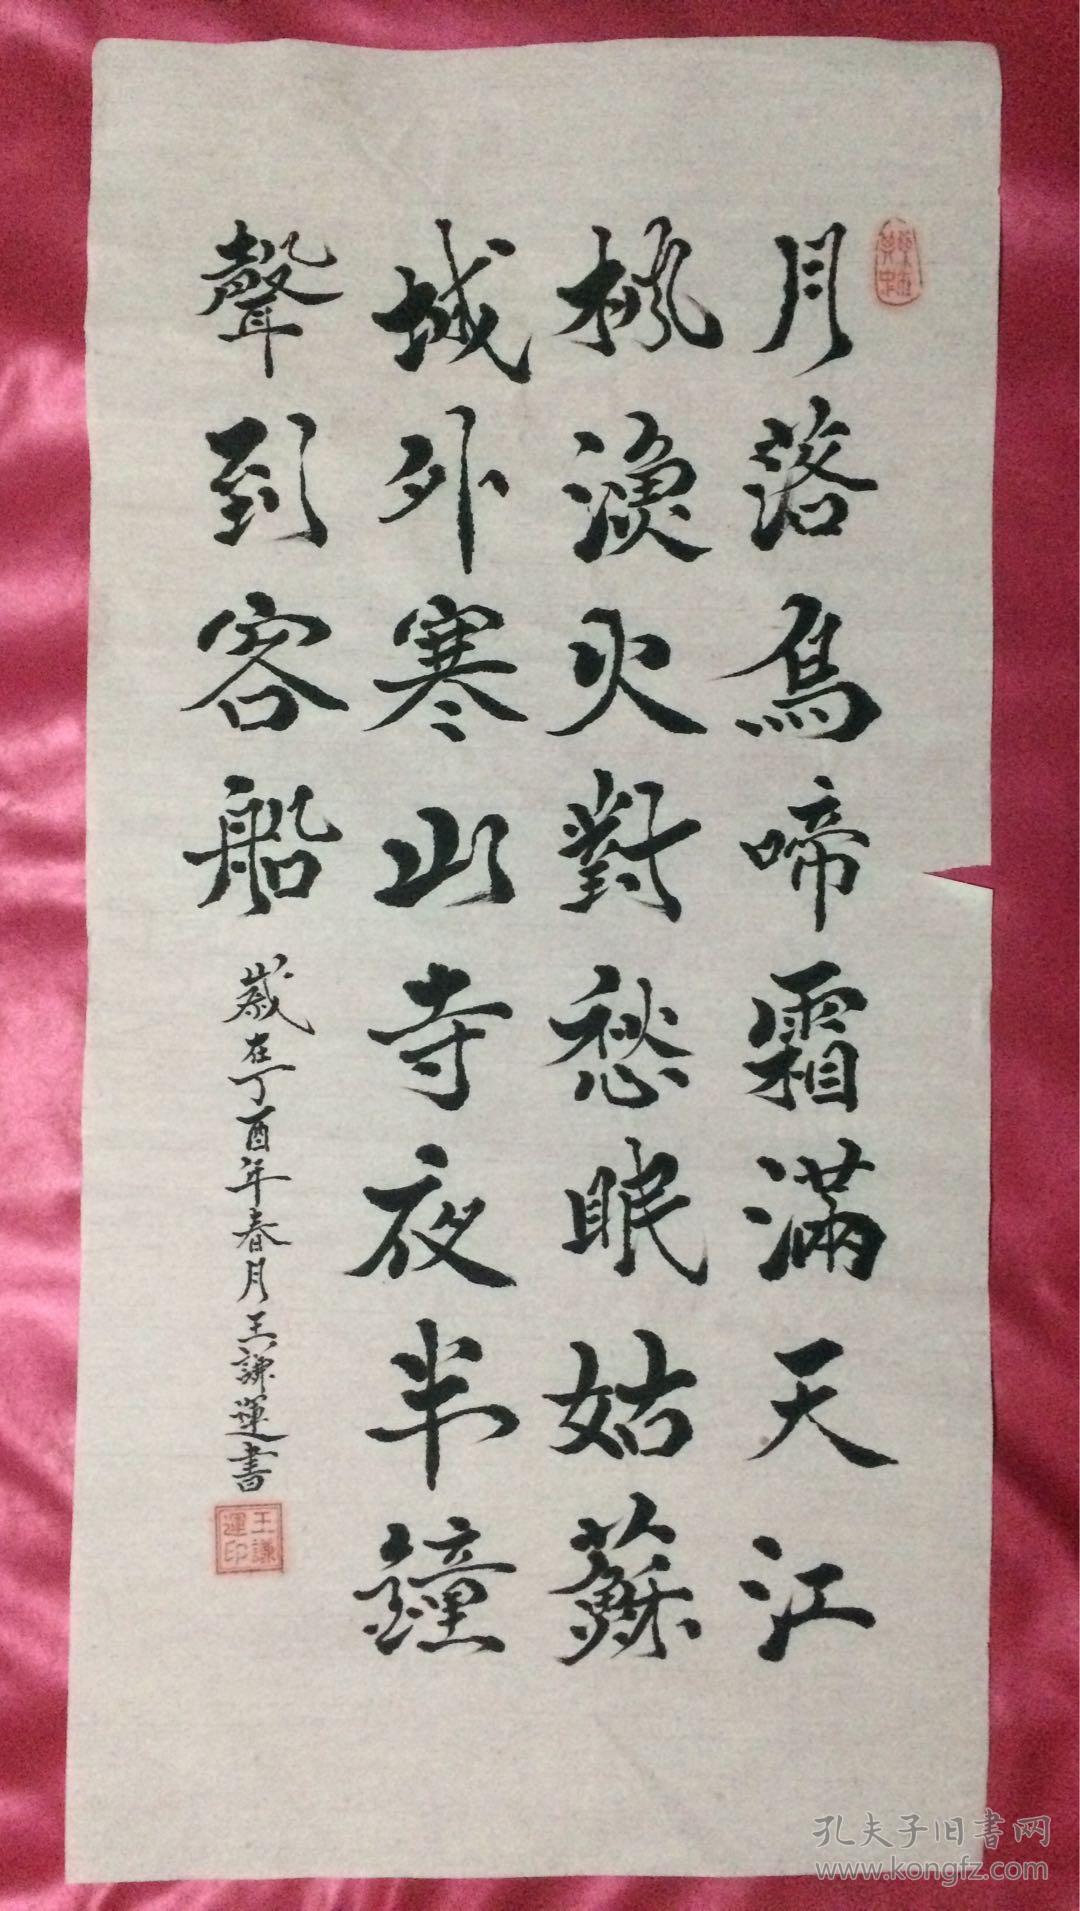 月落烏啼霜滿天江
楓漁火對愁眠姑蘇
城外寒山寺夜半鐘
聲到客船
歲在丁酉年春月王謙運書
王謙
運印
孔夫子旧书网
www.kongfz.com